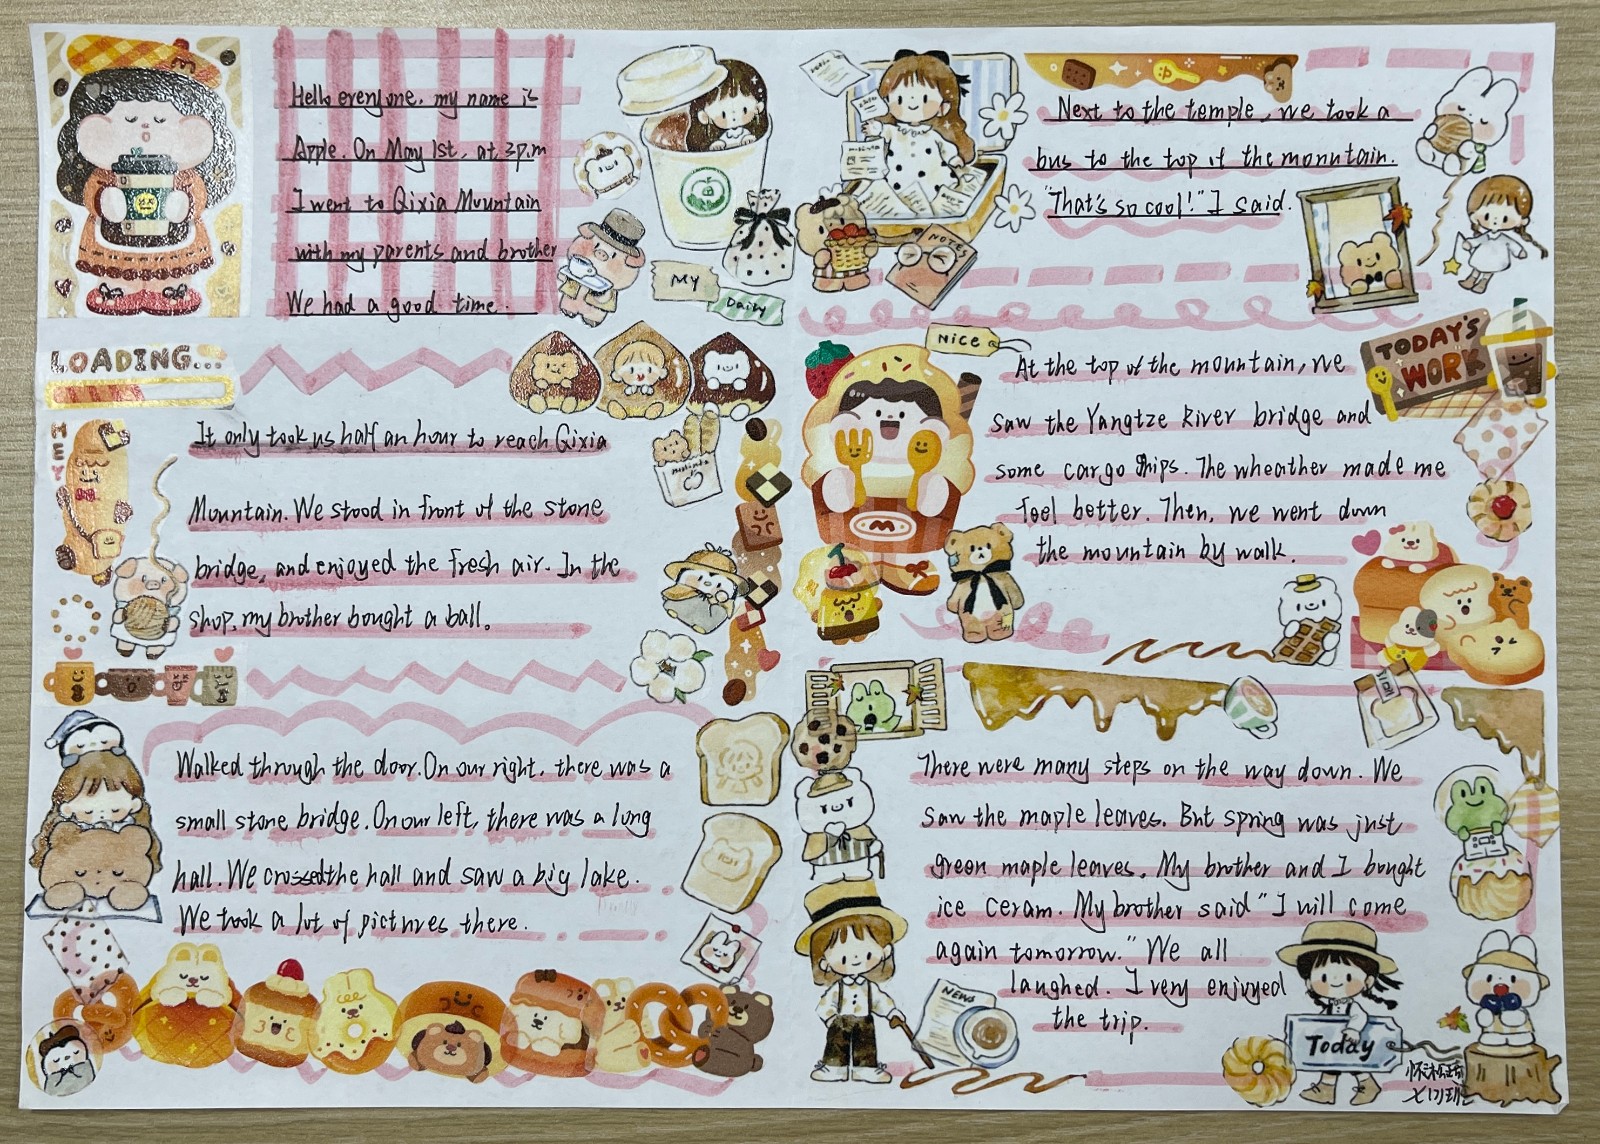 Hello everyone, my name is
Apple. On May 1st, at 3p.m
I went to Qixia Mountain
with my parents and brother
We had a good time.
MY
Daily
LOADING...
HEY
It only took us half an hour to reach Qixia
Mountain. We stood in front of the stone
bridge, and enjoyed the fresh air. In the
shop, my brother bought a ball.
Walked through the door. On our right, there was a
small stone bridge. On our left, there was a long
hall. We crossed the hall and saw a big lake.
We took a lot of pictures there.
Next to the temple, we took a
bus to the top of the mountain.
"That's so cool!" I said.
NOTES
Nice
TODAY'S
WORK
At the top of the mountain, we
saw the Yangtze River bridge and
some cargo ships. The wheather made me
feel better. Then, we went down
the mountain by walk.
M
There were many steps on the way down. We
saw the maple leaves. But spring was just
green maple leaves. My brother and I bought
ice ceram. My brother said "I will come
again tomorrow." We all
laughed. I very enjoyed
the trip.
NEWS
Today